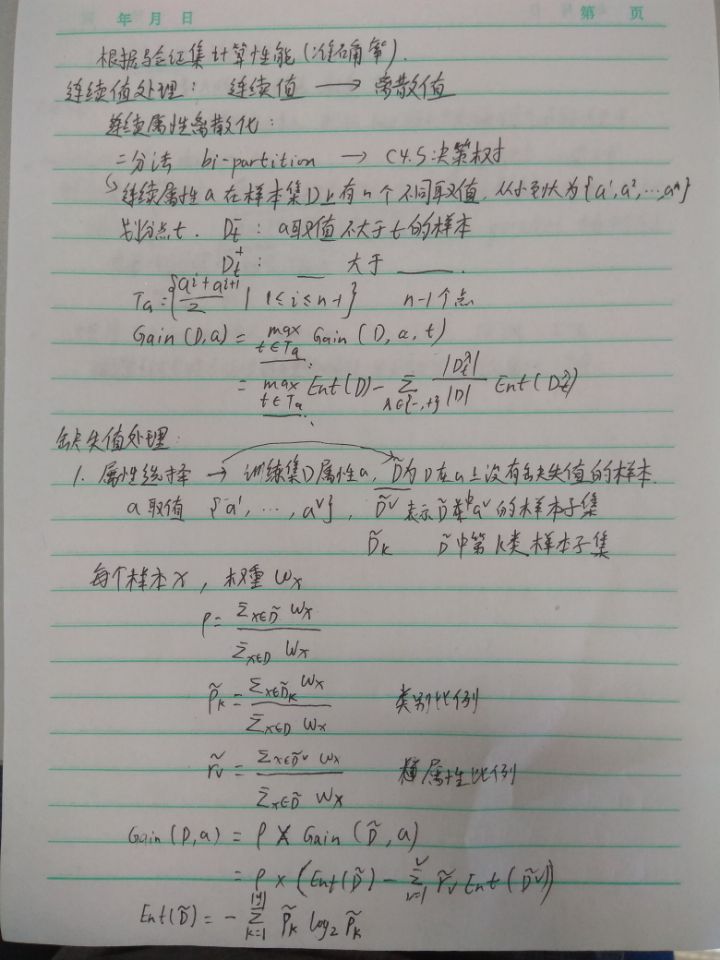 年 月 日 第 页
根据验证集计算性能(准确率).
连续值处理: 连续值 → 离散值
连续属性离散化:
二分法 bi-partition → C4.5决策树
↳连续属性a在样本集D上有n个不同取值,从小到大为{a¹,a²,…,aⁿ}
划分点t. Dₜ⁻: a取值不大于t的样本
Dₜ⁺: __ 大于 ____.
Tₐ={(aⁱ+aⁱ⁺¹)/2 | 1≤i≤n-1} n-1个点
Gain(D,a) = max_{t∈Tₐ} Gain(D,a,t)
= max_{t∈Tₐ} Ent(D) - Σ_{λ∈{-,+}} |Dₜ^λ|/|D| Ent(Dₜ^λ)
缺失值处理:
1. 属性选择 → 训练集D属性a, D̃为D在a上没有缺失值的样本.
a取值 {a¹,…,aⱽ}, D̃ᵛ表示D̃中aᵛ的样本子集
D̃ₖ D̃中第k类样本子集
每个样本x, 权重wₓ
ρ = Σ_{x∈D̃} wₓ / Σ_{x∈D} wₓ
p̃ₖ = Σ_{x∈D̃ₖ} wₓ / Σ_{x∈D} wₓ 类别比例
r̃ᵥ = Σ_{x∈D̃ᵛ} wₓ / Σ_{x∈D̃} wₓ 属性比例
Gain(D,a) = ρ × Gain(D̃,a)
= ρ × (Ent(D̃) - Σ_{v=1}^{V} r̃ᵥ Ent(D̃ᵛ))
Ent(D̃) = -Σ_{k=1}^{|y|} p̃ₖ log₂ p̃ₖ